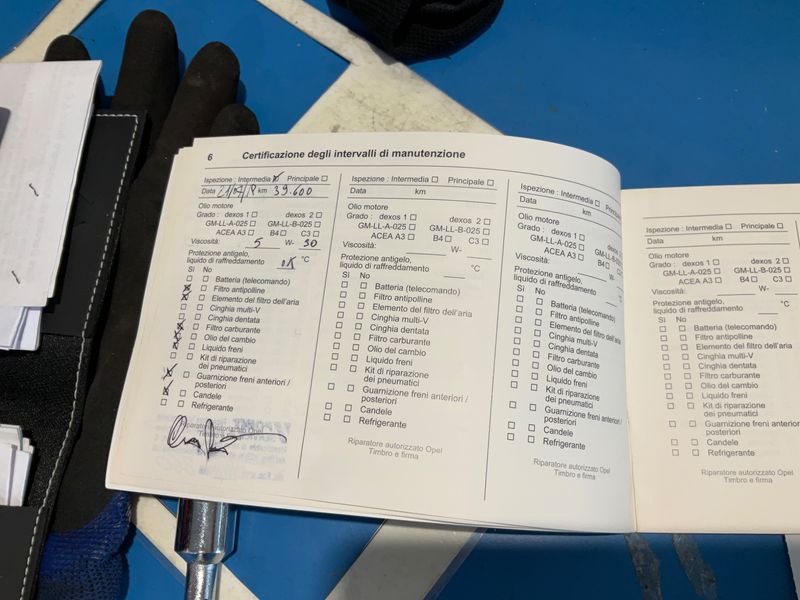 6 Certificazione degli intervalli di manutenzione
Ispezione : Intermedia ☒ Principale ☐
Data km 39.600
Olio motore
Grado : dexos 1 ☐ dexos 2 ☐
GM-LL-A-025 ☐ GM-LL-B-025 ☐
ACEA A3 ☐ B4 ☐ C3 ☐
Viscosità: 5 W- 30
Protezione antigelo,
liquido di raffreddamento OK °C
Sì No
Batteria (telecomando)
Filtro antipolline
Elemento del filtro dell'aria
Cinghia multi-V
Cinghia dentata
Filtro carburante
Olio del cambio
Liquido freni
Kit di riparazione
dei pneumatici
Guarnizione freni anteriori /
posteriori
Candele
Refrigerante
Timbro e
Ispezione : Intermedia ☐ Principale ☐
Data km
Olio motore
Grado : dexos 1 ☐ dexos 2 ☐
GM-LL-A-025 ☐ GM-LL-B-025 ☐
ACEA A3 ☐ B4 ☐ C3 ☐
Viscosità: W-
Protezione antigelo,
liquido di raffreddamento °C
Sì No
☐ ☐ Batteria (telecomando)
☐ ☐ Filtro antipolline
☐ ☐ Elemento del filtro dell'aria
☐ ☐ Cinghia multi-V
☐ ☐ Cinghia dentata
☐ ☐ Filtro carburante
☐ ☐ Olio del cambio
☐ ☐ Liquido freni
☐ ☐ Kit di riparazione
dei pneumatici
☐ ☐ Guarnizione freni anteriori /
posteriori
☐ ☐ Candele
☐ ☐ Refrigerante
Riparatore autorizzato Opel
Timbro e firma
Ispezione : Intermedia ☐ Principale
Data km
Olio motore
Grado : dexos 1 ☐ dexos 2
GM-LL-A-025 ☐ GM-LL-B-025
ACEA A3 ☐ B4 ☐ C3
Viscosità: W-
Protezione antigelo,
liquido di raffreddamento °C
Sì No
☐ ☐ Batteria (telecomando)
☐ ☐ Filtro antipolline
☐ ☐ Elemento del filtro dell'aria
☐ ☐ Cinghia multi-V
☐ ☐ Cinghia dentata
☐ ☐ Filtro carburante
☐ ☐ Olio del cambio
☐ ☐ Liquido freni
☐ ☐ Kit di riparazione
dei pneumatici
☐ ☐ Guarnizione freni anteriori /
posteriori
☐ ☐ Candele
☐ ☐ Refrigerante
Riparatore autorizzato Opel
Timbro e firma
Ispezione : Intermedia ☐ Principale ☐
Data km
Olio motore
Grado : dexos 1 ☐ dexos 2 ☐
GM-LL-A-025 ☐ GM-LL-B-025 ☐
ACEA A3 ☐ B4 ☐ C3 ☐
Viscosità: W-
Protezione antigelo,
liquido di raffreddamento °C
Sì No
☐ ☐ Batteria (telecomando)
☐ ☐ Filtro antipolline
☐ ☐ Elemento del filtro dell'aria
☐ ☐ Cinghia multi-V
☐ ☐ Cinghia dentata
☐ ☐ Filtro carburante
☐ ☐ Olio del cambio
☐ ☐ Liquido freni
☐ ☐ Kit di riparazione
dei pneumatici
☐ ☐ Guarnizione freni anteriori
posteriori
☐ ☐ Candele
☐ ☐ Refrigerante
Riparatore autorizzato Opel
Timbro e firma